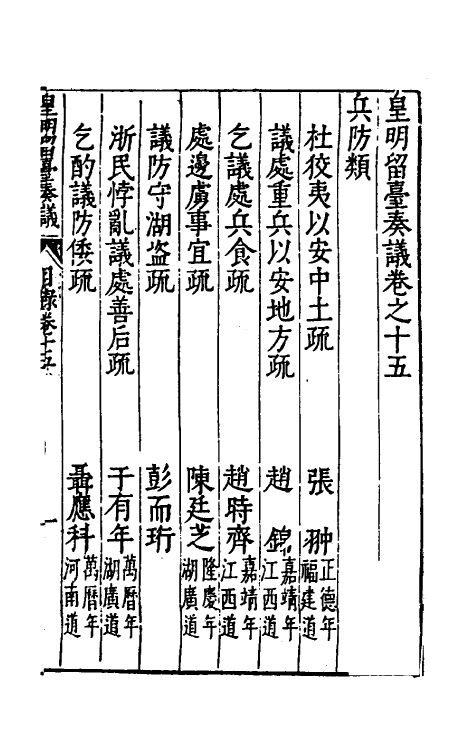 皇明留臺奏議卷之十五
兵防類
杜狡夷以安中土疏 張翀 正德年福建道
議處重兵以安地方疏 趙錦 嘉靖年江西道
乞議處兵食疏 趙時齊 嘉靖年江西道
處邊虜事宜疏 陳廷芝 隆慶年湖廣道
議防守湖盜疏 彭而珩
浙民悖亂議處善后疏 于有年 萬曆年湖廣道
乞酌議防倭疏 聶應科 萬曆年河南道
皇明留臺奏議 目錄卷十五 一